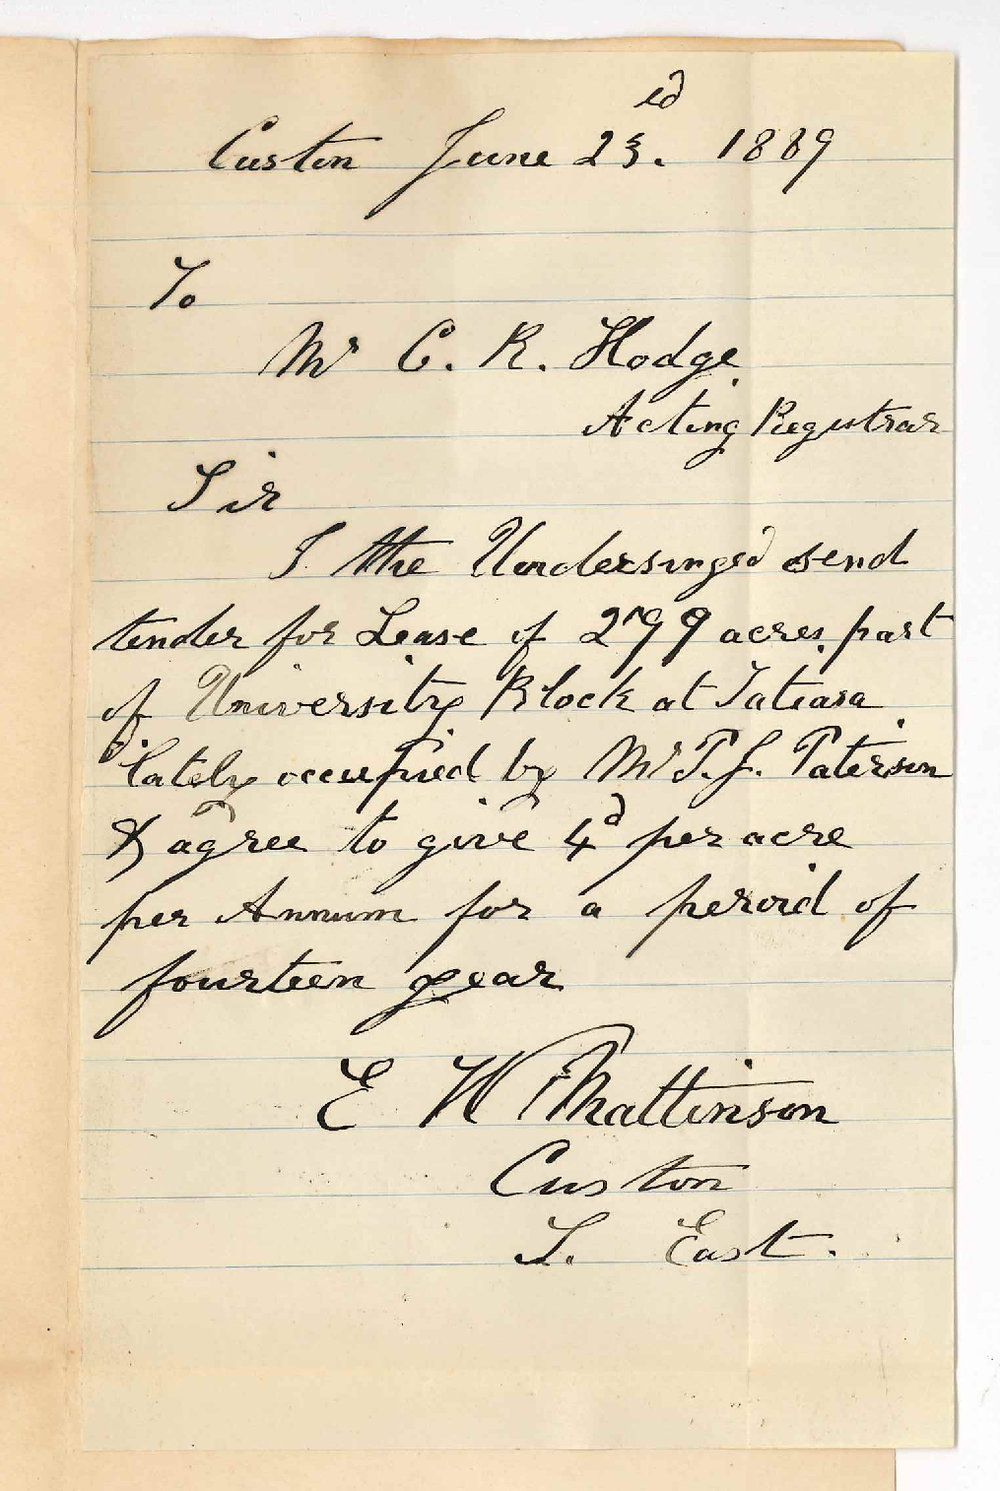 Custon June 23.ed 1889
To
Mr C. R. Hodge
Acting Registrar
Sir
I the Undersinged send
tender for Lease of 299 acres part
of University Block at Tatiara
lately occupied by Mr T. J. Paterson
& agree to give 4d per acre
per Annum for a peroid of
fourteen year
E W Mattinson
Custon
S. East.